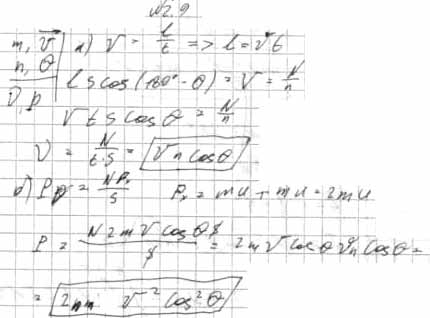 №2.9
m, v⃗ | а) v = l/t => l = vt
n, θ | l s cos(180° - θ) = V = N/n
ν, p | v t s cos θ = N/n
ν = N/(t·s) = v n cos θ
б) p = N P₁/s P₁ = mu + mu = 2mu
P = N 2 m v cos θ / s = 2 m v cos θ v n cos θ =
= 2nm v² cos² θ